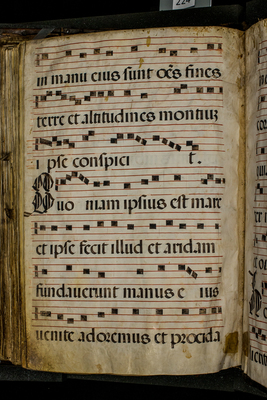 224
in manu eius sunt oēs fines
terre et altitudines montiuʒ
ipse conspici t.
Quo niam ipsius est mare
et ipse fecit illud et aridam
fundaverunt manus e ius
venite adoremus et procida